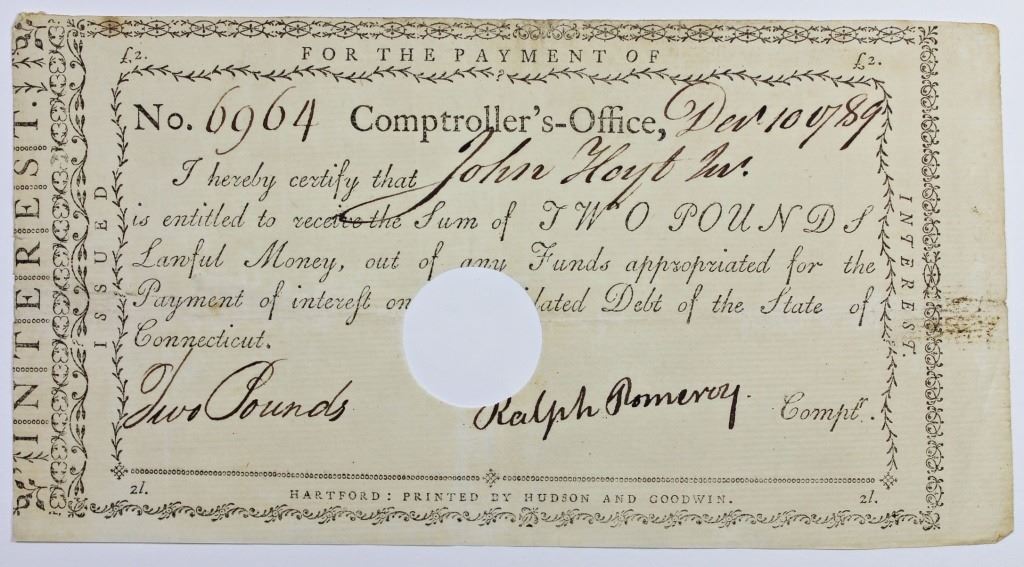 INTEREST.
£2. FOR THE PAYMENT OF £2.
ISSUED
No. 6964 Comptroller's-Office, Decr 10 1789
I hereby certify that John Hoyt Jur.
is entitled to receive the Sum of TWO POUNDS
Lawful Money, out of any Funds appropriated for the
Payment of interest on idated Debt of the State of
Connecticut.
Two Pounds Ralph Pomeroy Comptr.
INTEREST.
2l. HARTFORD: PRINTED BY HUDSON AND GOODWIN. 2l.